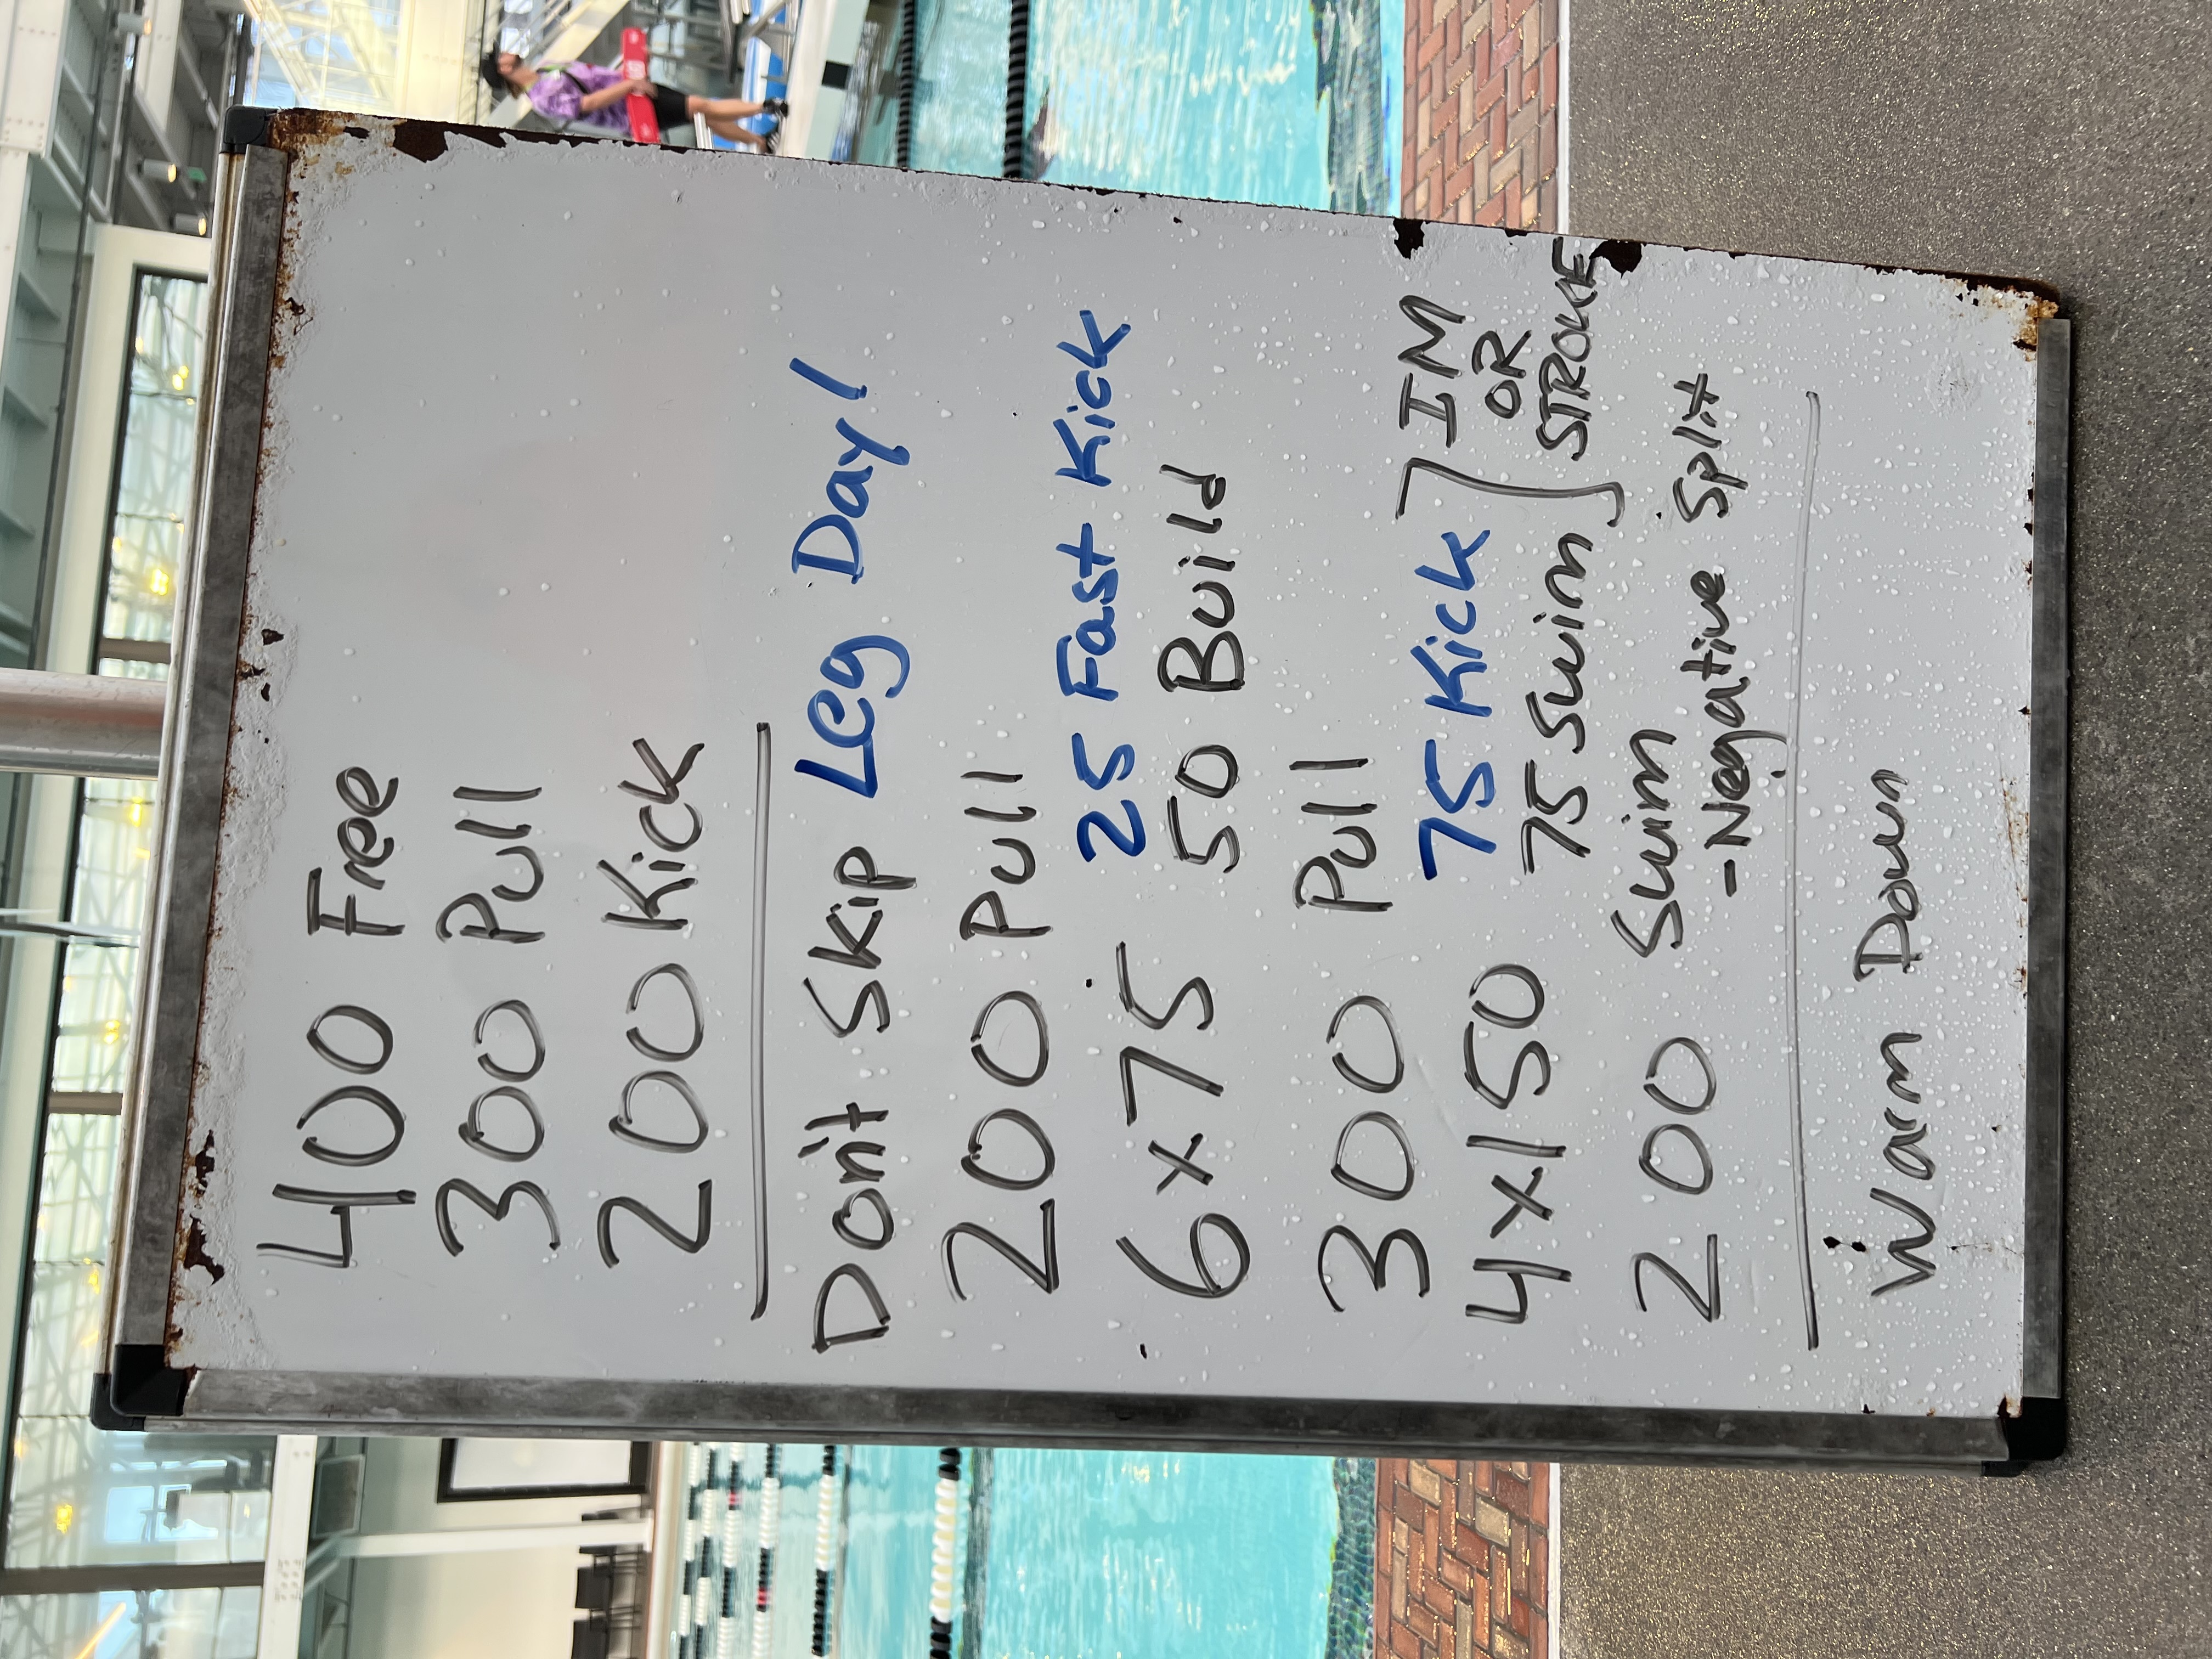 400 Free
300 Pull
200 Kick
Don't Skip Leg Day!
200 Pull
6x75 25 Fast Kick
50 Build
300 Pull
4x150 75 Kick ] IM
75 Swim OR
STROKE
200 Swim
-Negative Split
Warm Down